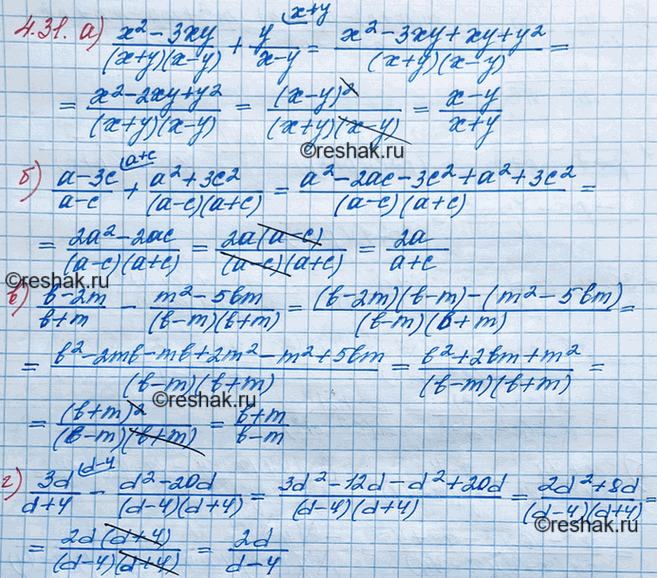 4.31. а) (x² − 3xy)/((x+y)(x−y)) + y/(x−y) ^(x+y) = (x² − 3xy + xy + y²)/((x+y)(x−y)) =
= (x² − 2xy + y²)/((x+y)(x−y)) = (x−y)²/((x+y)(x−y)) = (x−y)/(x+y)
©reshak.ru
б) (a−3c)/(a−c) ^(a+c) + (a² + 3c²)/((a−c)(a+c)) = (a² − 2ac − 3c² + a² + 3c²)/((a−c)(a+c)) =
= (2a² − 2ac)/((a−c)(a+c)) = 2a(a−c)/((a−c)(a+c)) = 2a/(a+c)
©reshak.ru
в) (b−2m)/(b+m) − (m² − 5bm)/((b−m)(b+m)) = ((b−2m)(b−m) − (m² − 5bm))/((b−m)(b+m)) =
= (b² − 2mb − mb + 2m² − m² + 5bm)/((b−m)(b+m)) = (b² + 2bm + m²)/((b−m)(b+m)) =
©reshak.ru
= (b+m)²/((b−m)(b+m)) = (b+m)/(b−m)
г) 3d/(d+4) ^(d−4) − (d² − 20d)/((d−4)(d+4)) = (3d² − 12d − d² + 20d)/((d−4)(d+4)) = (2d² + 8d)/((d−4)(d+4)) =
= 2d(d+4)/((d−4)(d+4)) = 2d/(d−4)
©reshak.ru